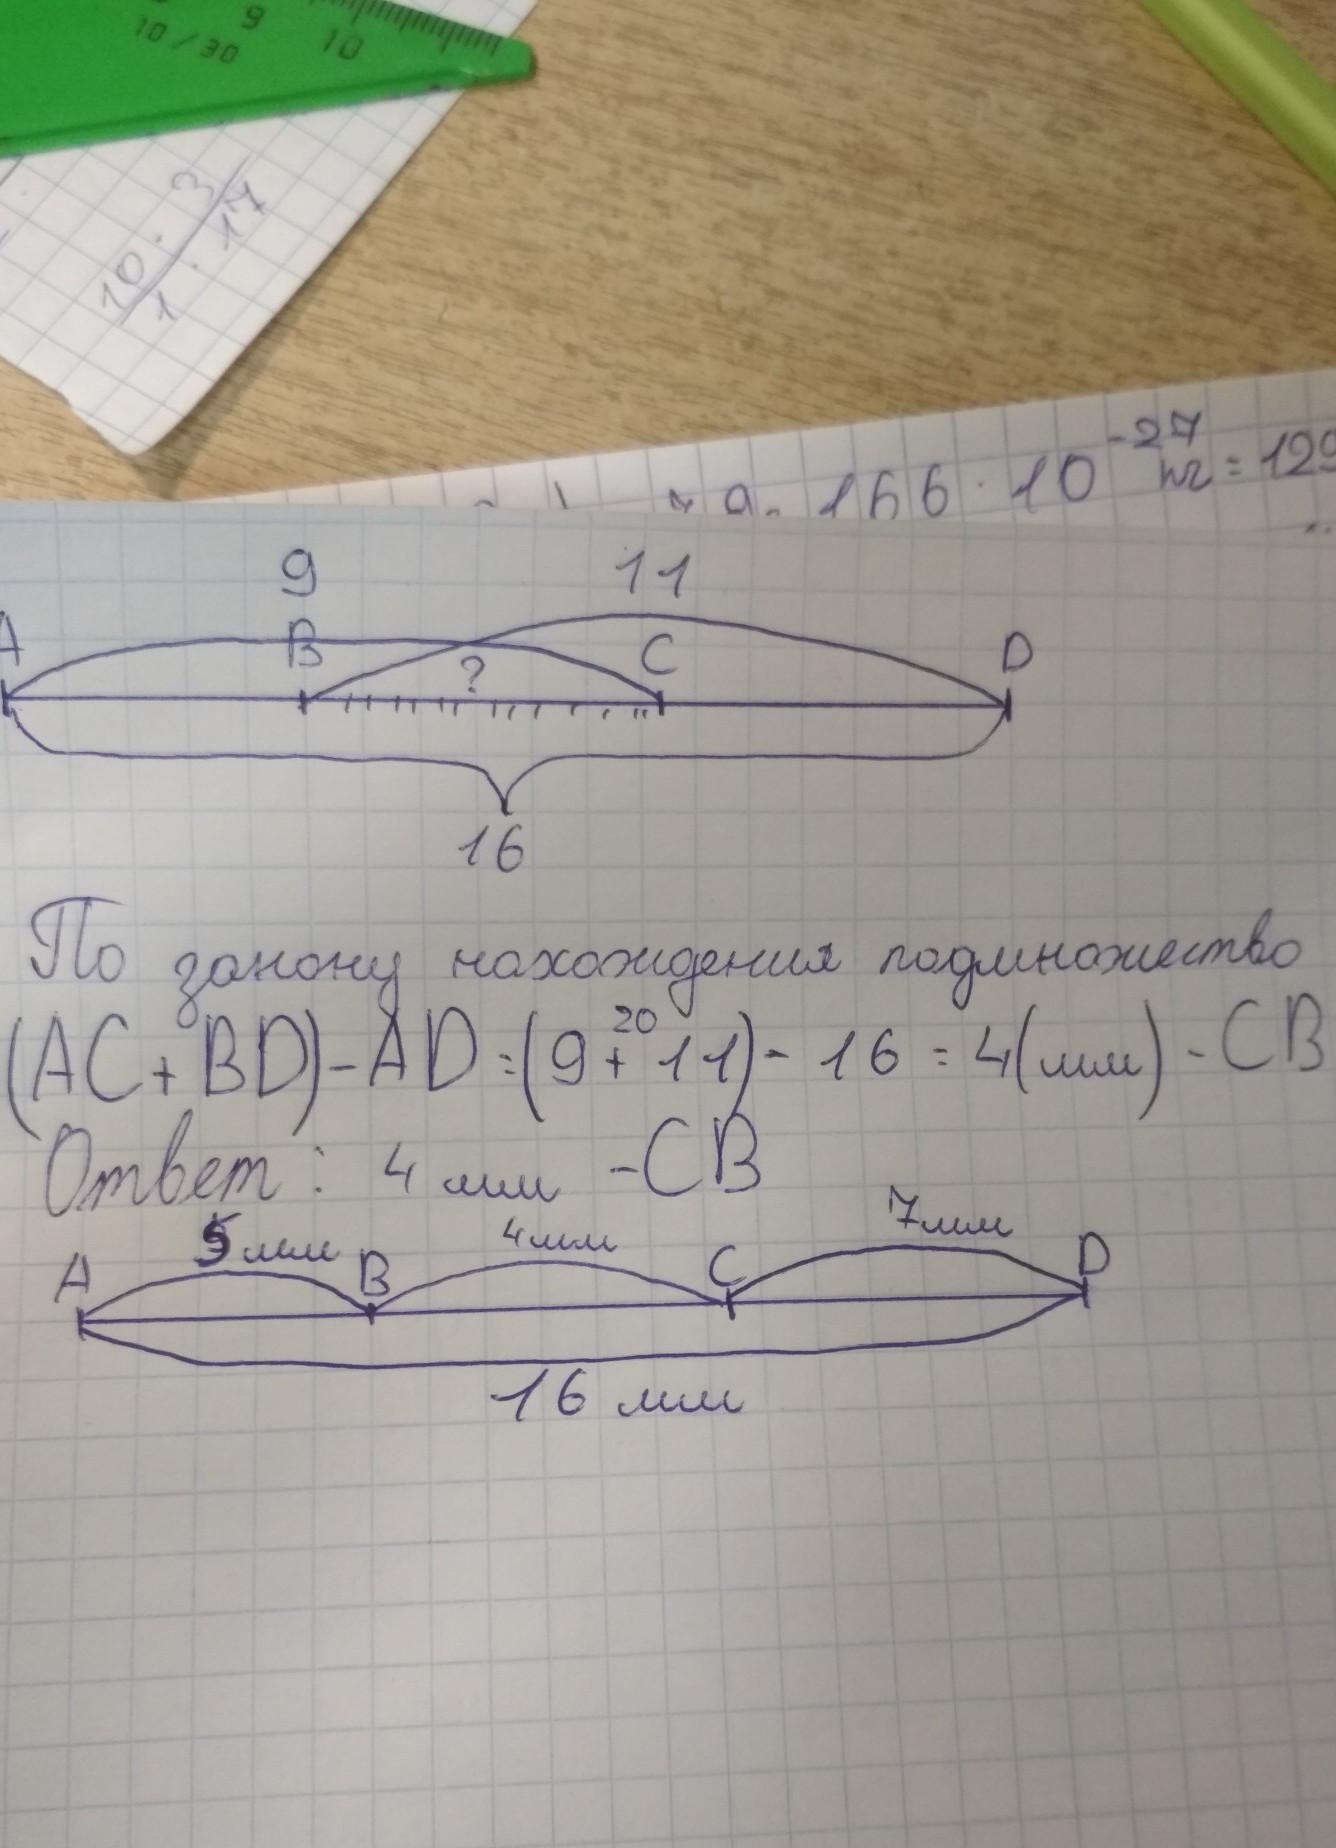 9 10
10/30
10 · 3
1 · 17
166 · 10⁻²⁷ кг = 129
9 11
A B ? C D
16
По закону нахождения подмножество
(AC + BD) - AD = (9 + 11) - 16 = 4(мм) - CB
20
Ответ: 4 мм - CB
5мм 4мм 7мм
A B C D
16 мм